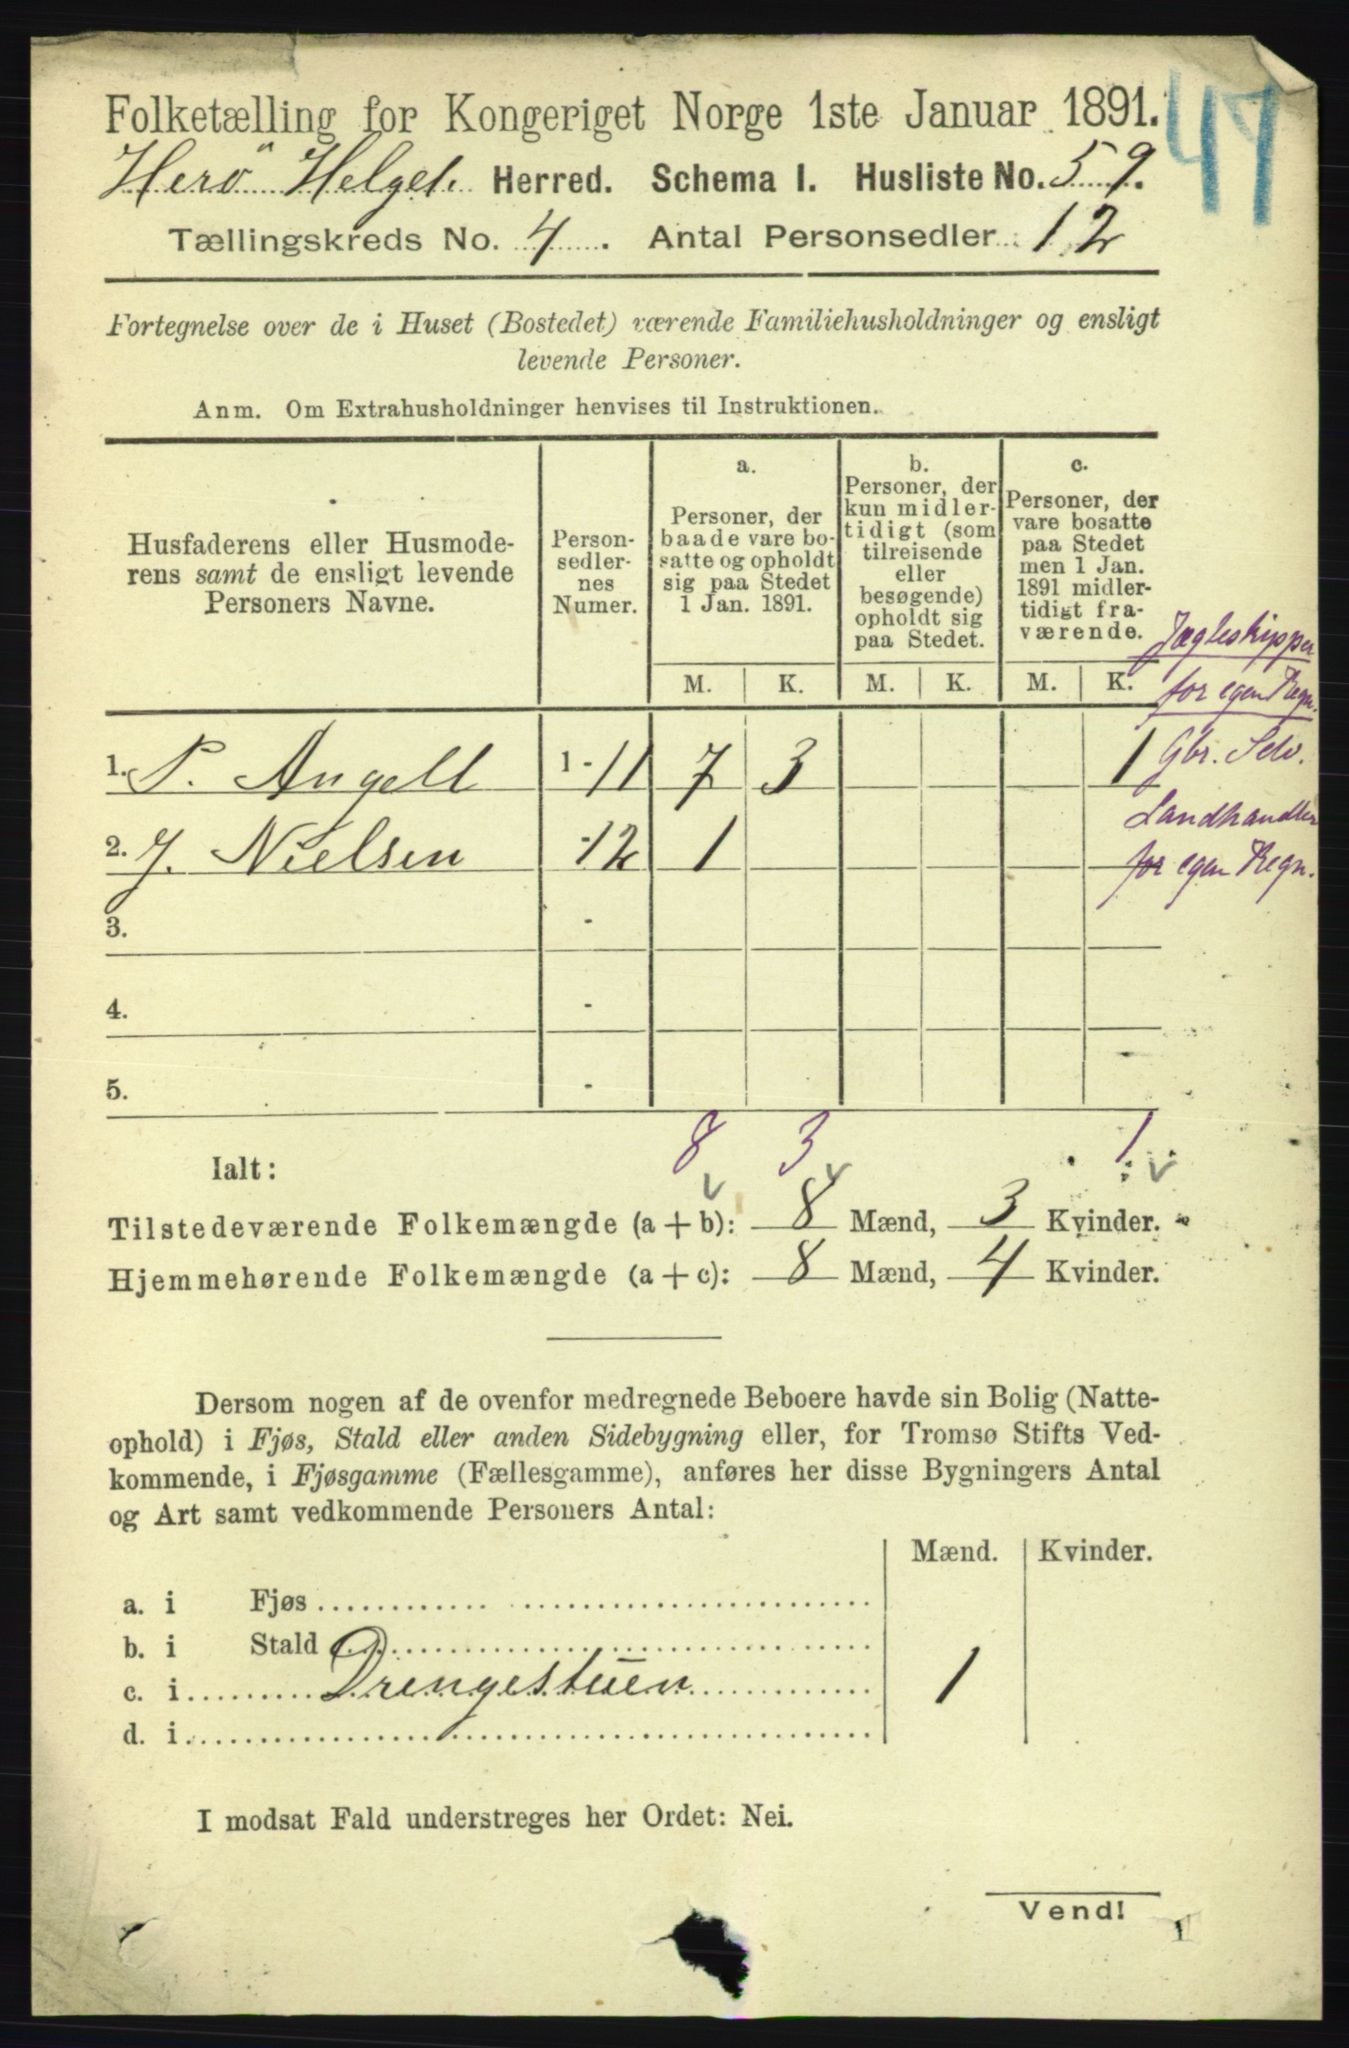 Folketælling for Kongeriget Norge 1ste Januar 1891.
47
Herö Helgel. Herred. Schema I. Husliste No. 59.
Tællingskreds No. 4. Antal Personsedler 12
Fortegnelse over de i Huset (Bostedet) værende Familiehusholdninger og ensligt
levende Personer.
Anm. Om Extrahusholdninger henvises til Instruktionen.
Husfaderens eller Husmode-
rens samt de ensligt levende
Personers Navne.
Person-
sedler-
nes
Numer.
a.
Personer, der
baade vare bo-
satte og opholdt
sig paa Stedet
1 Jan. 1891.
b.
Personer, der
kun midler-
tidigt (som
tilreisende
eller
besøgende)
opholdt sig
paa Stedet.
c.
Personer, der
vare bosatte
paa Stedet
men 1 Jan.
1891 midler-
tidigt fra-
værende.
M. K. M. K. M. K.
Jægteskipper
for egen Regn.
1. P. Angell 1-11 7 3 1 Gbr. Selv.
2. J. Nielsen -12 1
Landhandler
for egen Regn.
3. -
4. -
5. -
Ialt: 8 3 1
Tilstedeværende Folkemængde (a+b): 8 Mænd, 3 Kvinder.
Hjemmehørende Folkemængde (a+c): 8 Mænd, 4 Kvinder.
Dersom nogen af de ovenfor medregnede Beboere havde sin Bolig (Natte-
ophold) i Fjøs, Stald eller anden Sidebygning eller, for Tromsø Stifts Ved-
kommende, i Fjøsgamme (Fællesgamme), anføres her disse Bygningers Antal
og Art samt vedkommende Personers Antal:
Mænd. Kvinder.
a. i Fjøs
b. i Stald
c. i Drengestuen 1
d. i
I modsat Fald understreges her Ordet: Nei.
Vend!